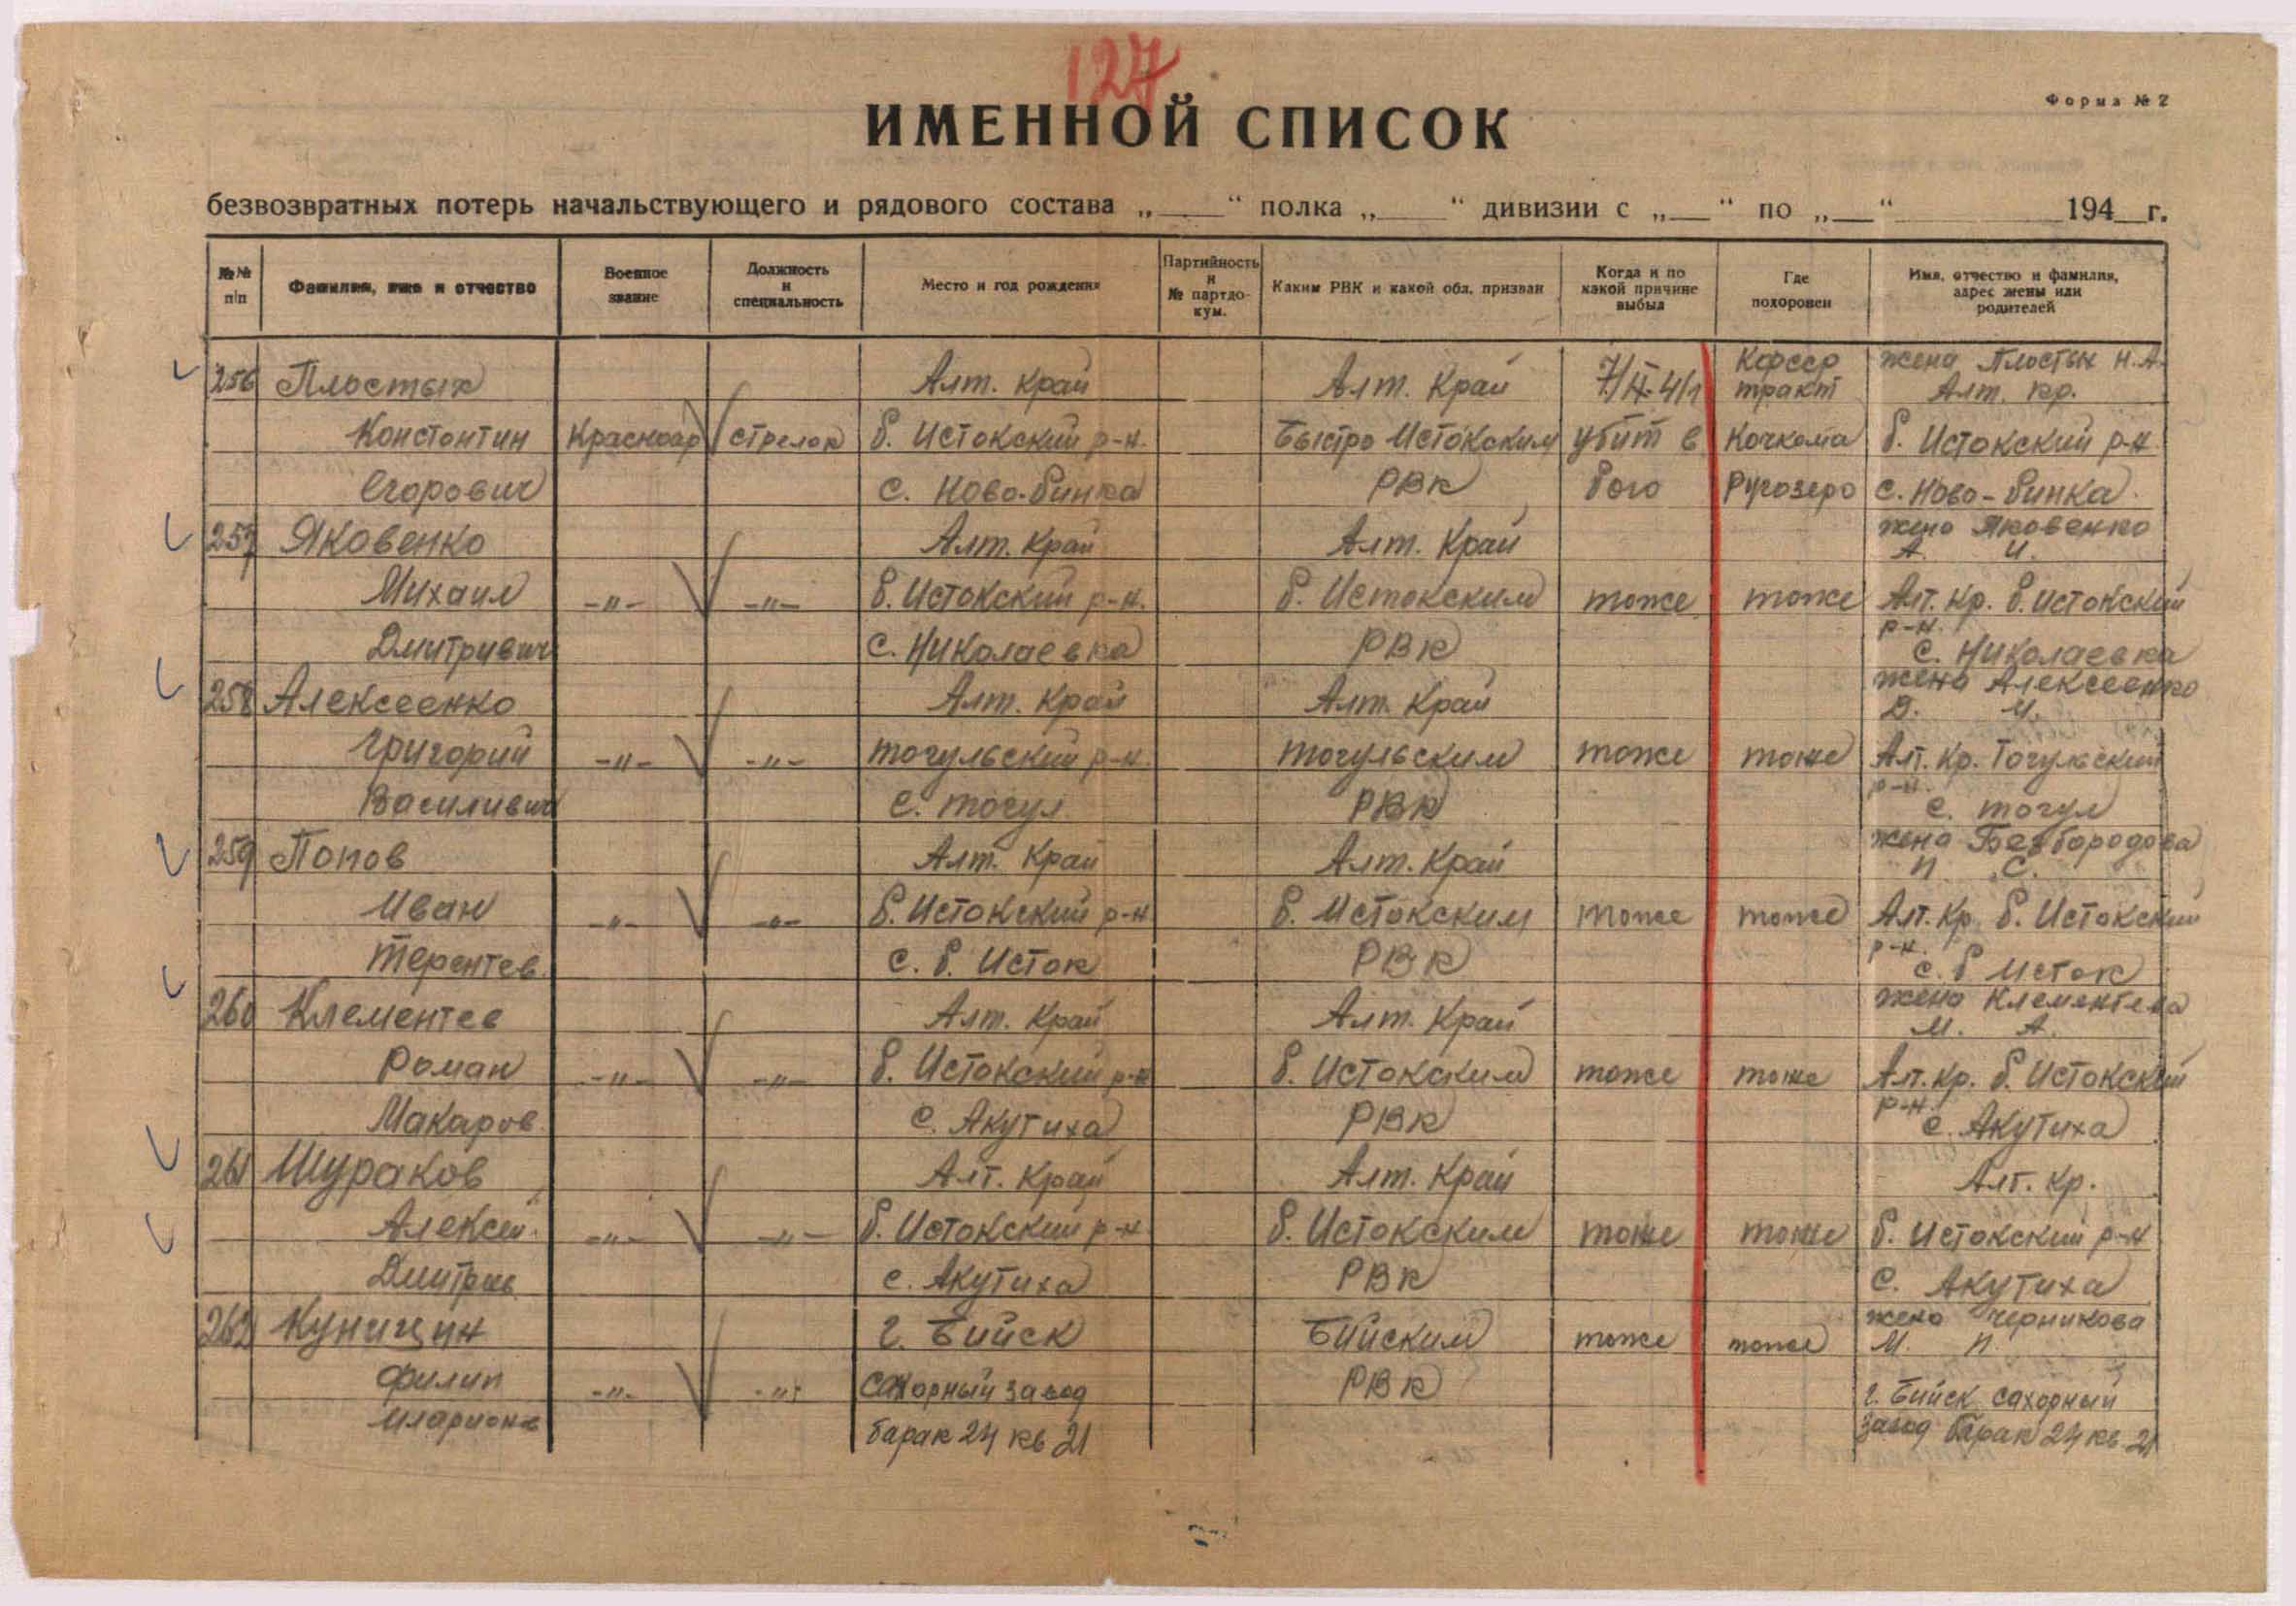 127
Форма № 2
ИМЕННОЙ СПИСОК
безвозвратных потерь начальствующего и рядового состава „___“ полка „___“ дивизии с „___“ по „___“ ______ 194__г.
№№ п/п | Фамилия, имя и отчество | Военное звание | Должность и специальность | Место и год рождения | Партийность и № партдокум. | Каким РВК и какой обл. призван | Когда и по какой причине выбыл | Где похоронен | Имя, отчество и фамилия, адрес жены или родителей
Кфсср жена Плостых Н.А.
256 Плостых Алт. Край Алт. Край тракт Алт. кр.
Константин Красноар стрелок б. Истокский р-н. Быстро Истокским убит в Кочкома б. Истокский р-н.
Егорович с. Ново-бинка РВК бою Ругозеро с. Ново-бинка.
жена Яковенко
257 Яковенко Алт. Край Алт. Край А. И.
Михаил -"- -"- б. Истокский р-н. б. Истокским тоже тоже Алт. кр. б. Истокский
р-н.
Дмитривич с. Николаевка РВК с. Николаевка
жена Алексеенко
258 Алексеенко Алт. Край Алт. Край Д. И.
Григорий -"- -"- Тогульский р-н. Тогульским тоже тоже Алт. Кр. Тогульский
р-н.
Василивич с. Тогул РВК с. Тогул
жена Безбородова
259 Попов Алт. Край Алт. Край П. С.
Иван -"- -"- б. Истокский р-н б. Истокским тоже тоже Алт. Кр. б. Истокский
р-н.
Терентев. с. б. Исток РВК с. б Исток
жена Клементева
260 Клементев Алт. Край Алт. Край М. А.
Роман -"- -"- б. Истокский р-н б. Истокским тоже тоже Алт. кр. б. Истокский
р-н.
Макаров. с. Акутиха РВК с. Акутиха
261 Шураков Алт. Край Алт. Край Алт. Кр.
Алексей. -"- -"- б. Истокский р-н б. Истокским тоже тоже б. Истокский р-н
Дмитрив. с. Акутиха РВК с. Акутиха
жена Черникова
262 Куницин г. Бийск Бийским тоже тоже М. П.
Филип -"- -"- Сахорный завод РВК г. Бийск сахорный
Иларионв барак 24 кв 21 завод барак 24 кв 21